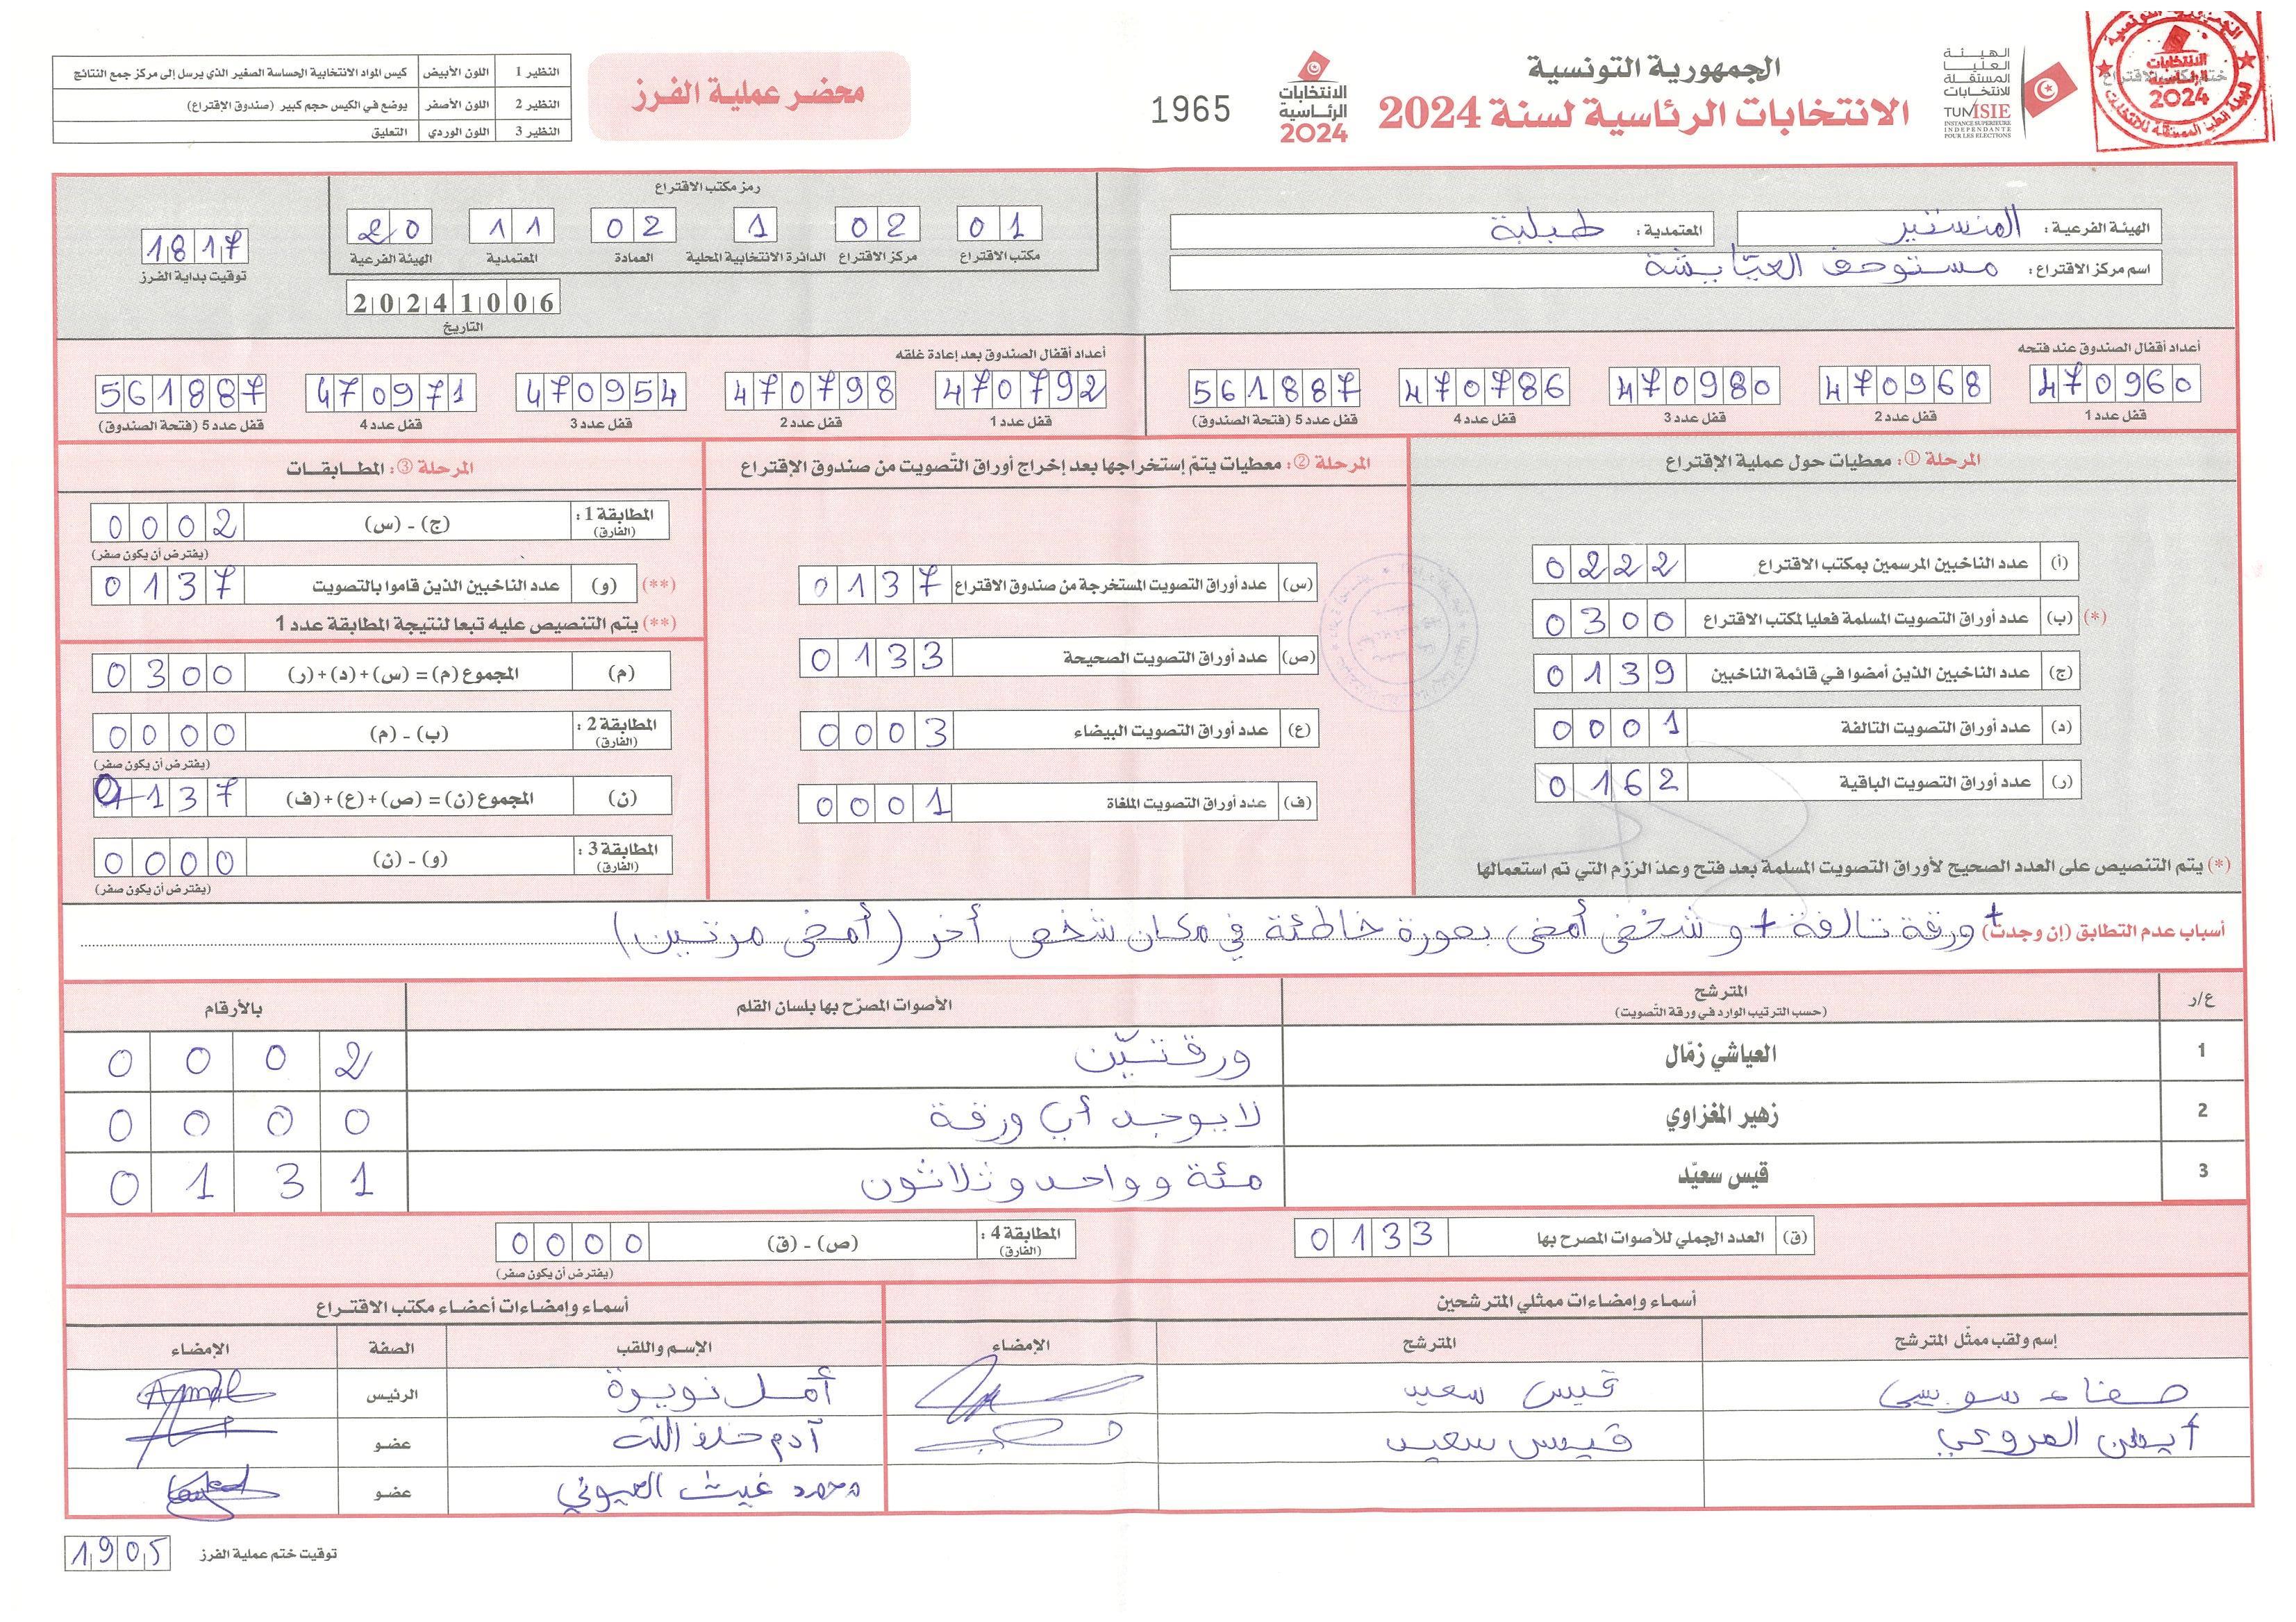 الجمهورية التونسية
الانتخابات الرئاسية لسنة 2024
الهيئة العليا المستقلة للانتخابات
TUNISIE
INSTANCE SUPERIEURE INDEPENDANTE POUR LES ELECTIONS
الانتخابات الرئاسية 2024
1965
محضر عملية الفرز
النظير 1 اللون الأبيض كيس المواد الانتخابية الحساسة الصغير الذي يرسل إلى مركز جمع النتائج
النظير 2 اللون الأصفر يوضع في الكيس حجم كبير (صندوق الإقتراع)
النظير 3 اللون الوردي التعليق
الهيئة الفرعية : المنستير المعتمدية : طبلبة
اسم مركز الاقتراع : مستوصف العيايشة
رمز مكتب الاقتراع
01 02 1 02 11 20
مكتب الاقتراع مركز الاقتراع الدائرة الانتخابية المحلية العمادة المعتمدية الهيئة الفرعية
20241006
التاريخ
1817
توقيت بداية الفرز
أعداد أقفال الصندوق عند فتحه
470960 470968 470980 470786 561887
قفل عدد 1 قفل عدد 2 قفل عدد 3 قفل عدد 4 قفل عدد 5 (فتحة الصندوق)
أعداد أقفال الصندوق بعد إعادة غلقه
470792 470798 470954 470971 561887
قفل عدد 1 قفل عدد 2 قفل عدد 3 قفل عدد 4 قفل عدد 5 (فتحة الصندوق)
المرحلة ① : معطيات حول عملية الإقتراع
(أ) عدد الناخبين المرسمين بمكتب الاقتراع 0222
(*) (ب) عدد أوراق التصويت المسلمة فعليا لمكتب الاقتراع 0300
(ج) عدد الناخبين الذين أمضوا في قائمة الناخبين 0139
(د) عدد أوراق التصويت التالفة 0001
(ر) عدد أوراق التصويت الباقية 0162
(*) يتم التنصيص على العدد الصحيح لأوراق التصويت المسلمة بعد فتح وعد الرزم التي تم استعمالها
المرحلة ② : معطيات يتم إستخراجها بعد إخراج أوراق التصويت من صندوق الإقتراع
(س) عدد أوراق التصويت المستخرجة من صندوق الاقتراع 0137
(ص) عدد أوراق التصويت الصحيحة 0133
(ع) عدد أوراق التصويت البيضاء 0003
(ف) عدد أوراق التصويت الملغاة 0001
المرحلة ③ : المطابقات
المطابقة 1 : (الفارق) (ج) - (س) 0002
(يفترض أن يكون صفر)
(**) (و) عدد الناخبين الذين قاموا بالتصويت 0137
(**) يتم التنصيص عليه تبعا لنتيجة المطابقة عدد 1
(م) المجموع (م) = (س)+(د)+(ر) 0300
المطابقة 2 : (الفارق) (ب) - (م) 0000
(يفترض أن يكون صفر)
(ن) المجموع (ن) = (ص)+(ع)+(ف) 0137
المطابقة 3 : (الفارق) (و) - (ن) 0000
(يفترض أن يكون صفر)
أسباب عدم التطابق (إن وجدت) + ورقة تالفة + و شخص أمضى بصورة خاطئة في مكان شخص أخر (أمضى مرتين)
ع/ر المترشح (حسب الترتيب الوارد في ورقة التصويت) الأصوات المصرّح بها بلسان القلم بالأرقام
1 العياشي زمّال ورقتيّن 0002
2 زهير المغزاوي لا يوجد أي ورقة 0000
3 قيس سعيّد مئة و واحد و ثلاثون 0131
(ق) العدد الجملي للأصوات المصرح بها 0133
المطابقة 4 : (الفارق) (ص) - (ق) 0000
(يفترض أن يكون صفر)
أسماء وإمضاءات ممثلي المترشحين
إسم ولقب ممثّل المترشح المترشح الإمضاء
صفاء سويسي قيس سعيد
أيمن المروعي قيس سعيد
أسماء وإمضاءات أعضاء مكتب الاقتراع
الإسم واللقب الصفة الإمضاء
أمل نويرة الرئيس Amal
آدم خلف الله عضو
محمد غيث العيوني عضو
توقيت ختم عملية الفرز 1905